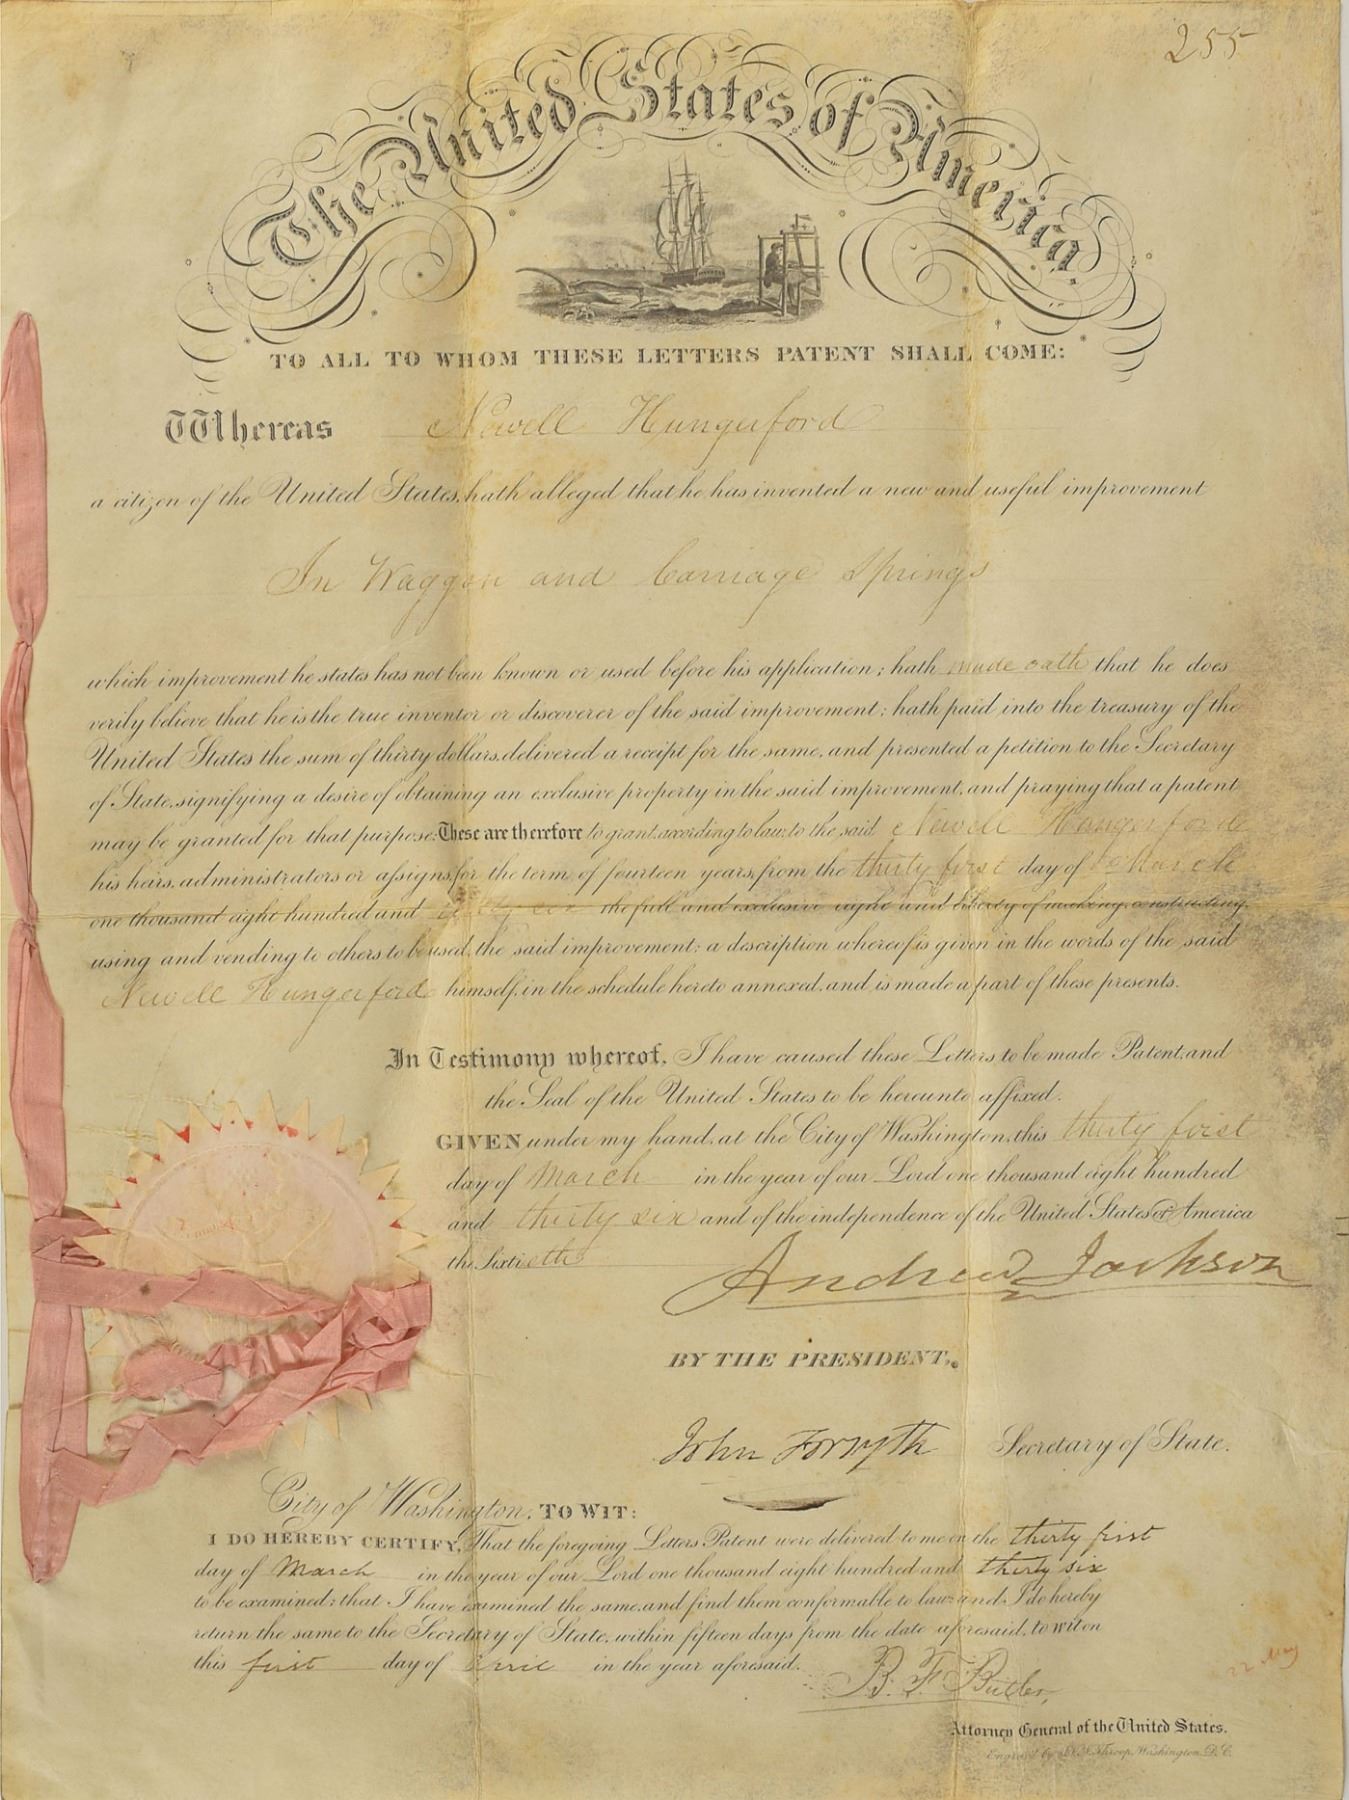 255
The United States of America
TO ALL TO WHOM THESE LETTERS PATENT SHALL COME:
Whereas Newell Hungerford
a citizen of the United States, hath alleged that he has invented a new and useful improvement
In Waggon and Carriage Springs
which improvement he states has not been known or used before his application; hath made oath that he does
verily believe that he is the true inventor or discoverer of the said improvement; hath paid into the treasury of the
United States the sum of thirty dollars, delivered a receipt for the same, and presented a petition to the Secretary
of State, signifying a desire of obtaining an exclusive property in the said improvement, and praying that a patent
may be granted for that purpose: These are therefore to grant, according to law, to the said Newell Hungerford
his heirs, administrators or assigns, for the term of fourteen years, from the thirty first day of March
one thousand eight hundred and thirty six the full and exclusive right and liberty of making, constructing,
using and vending to others to be used, the said improvement; a description whereof is given in the words of the said
Newell Hungerford himself, in the schedule hereto annexed, and is made a part of these presents.
In Testimony whereof, I have caused these Letters to be made Patent, and
the Seal of the United States to be hereunto affixed.
GIVEN under my hand, at the City of Washington, this thirty first
day of March in the year of our Lord one thousand eight hundred
and thirty six and of the independence of the United States of America
the Sixtieth
Andrew Jackson
BY THE PRESIDENT,
John Forsyth Secretary of State.
City of Washington, TO WIT:
I DO HEREBY CERTIFY, That the foregoing Letters Patent were delivered to me on the thirty first
day of March in the year of our Lord one thousand eight hundred and thirty six
to be examined; that I have examined the same, and find them conformable to law; and I do hereby
return the same to the Secretary of State, within fifteen days from the date aforesaid, to wit on
this first day of April in the year aforesaid.
B. F. Butler,
22 May
Attorney General of the United States.
Engraved by Throop, Washington, D.C.